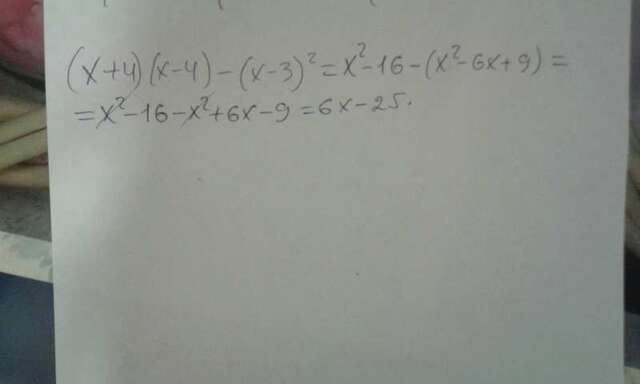 (x+4)(x-4)-(x-3)²=x²-16-(x²-6x+9)=
=x²-16-x²+6x-9=6x-25.